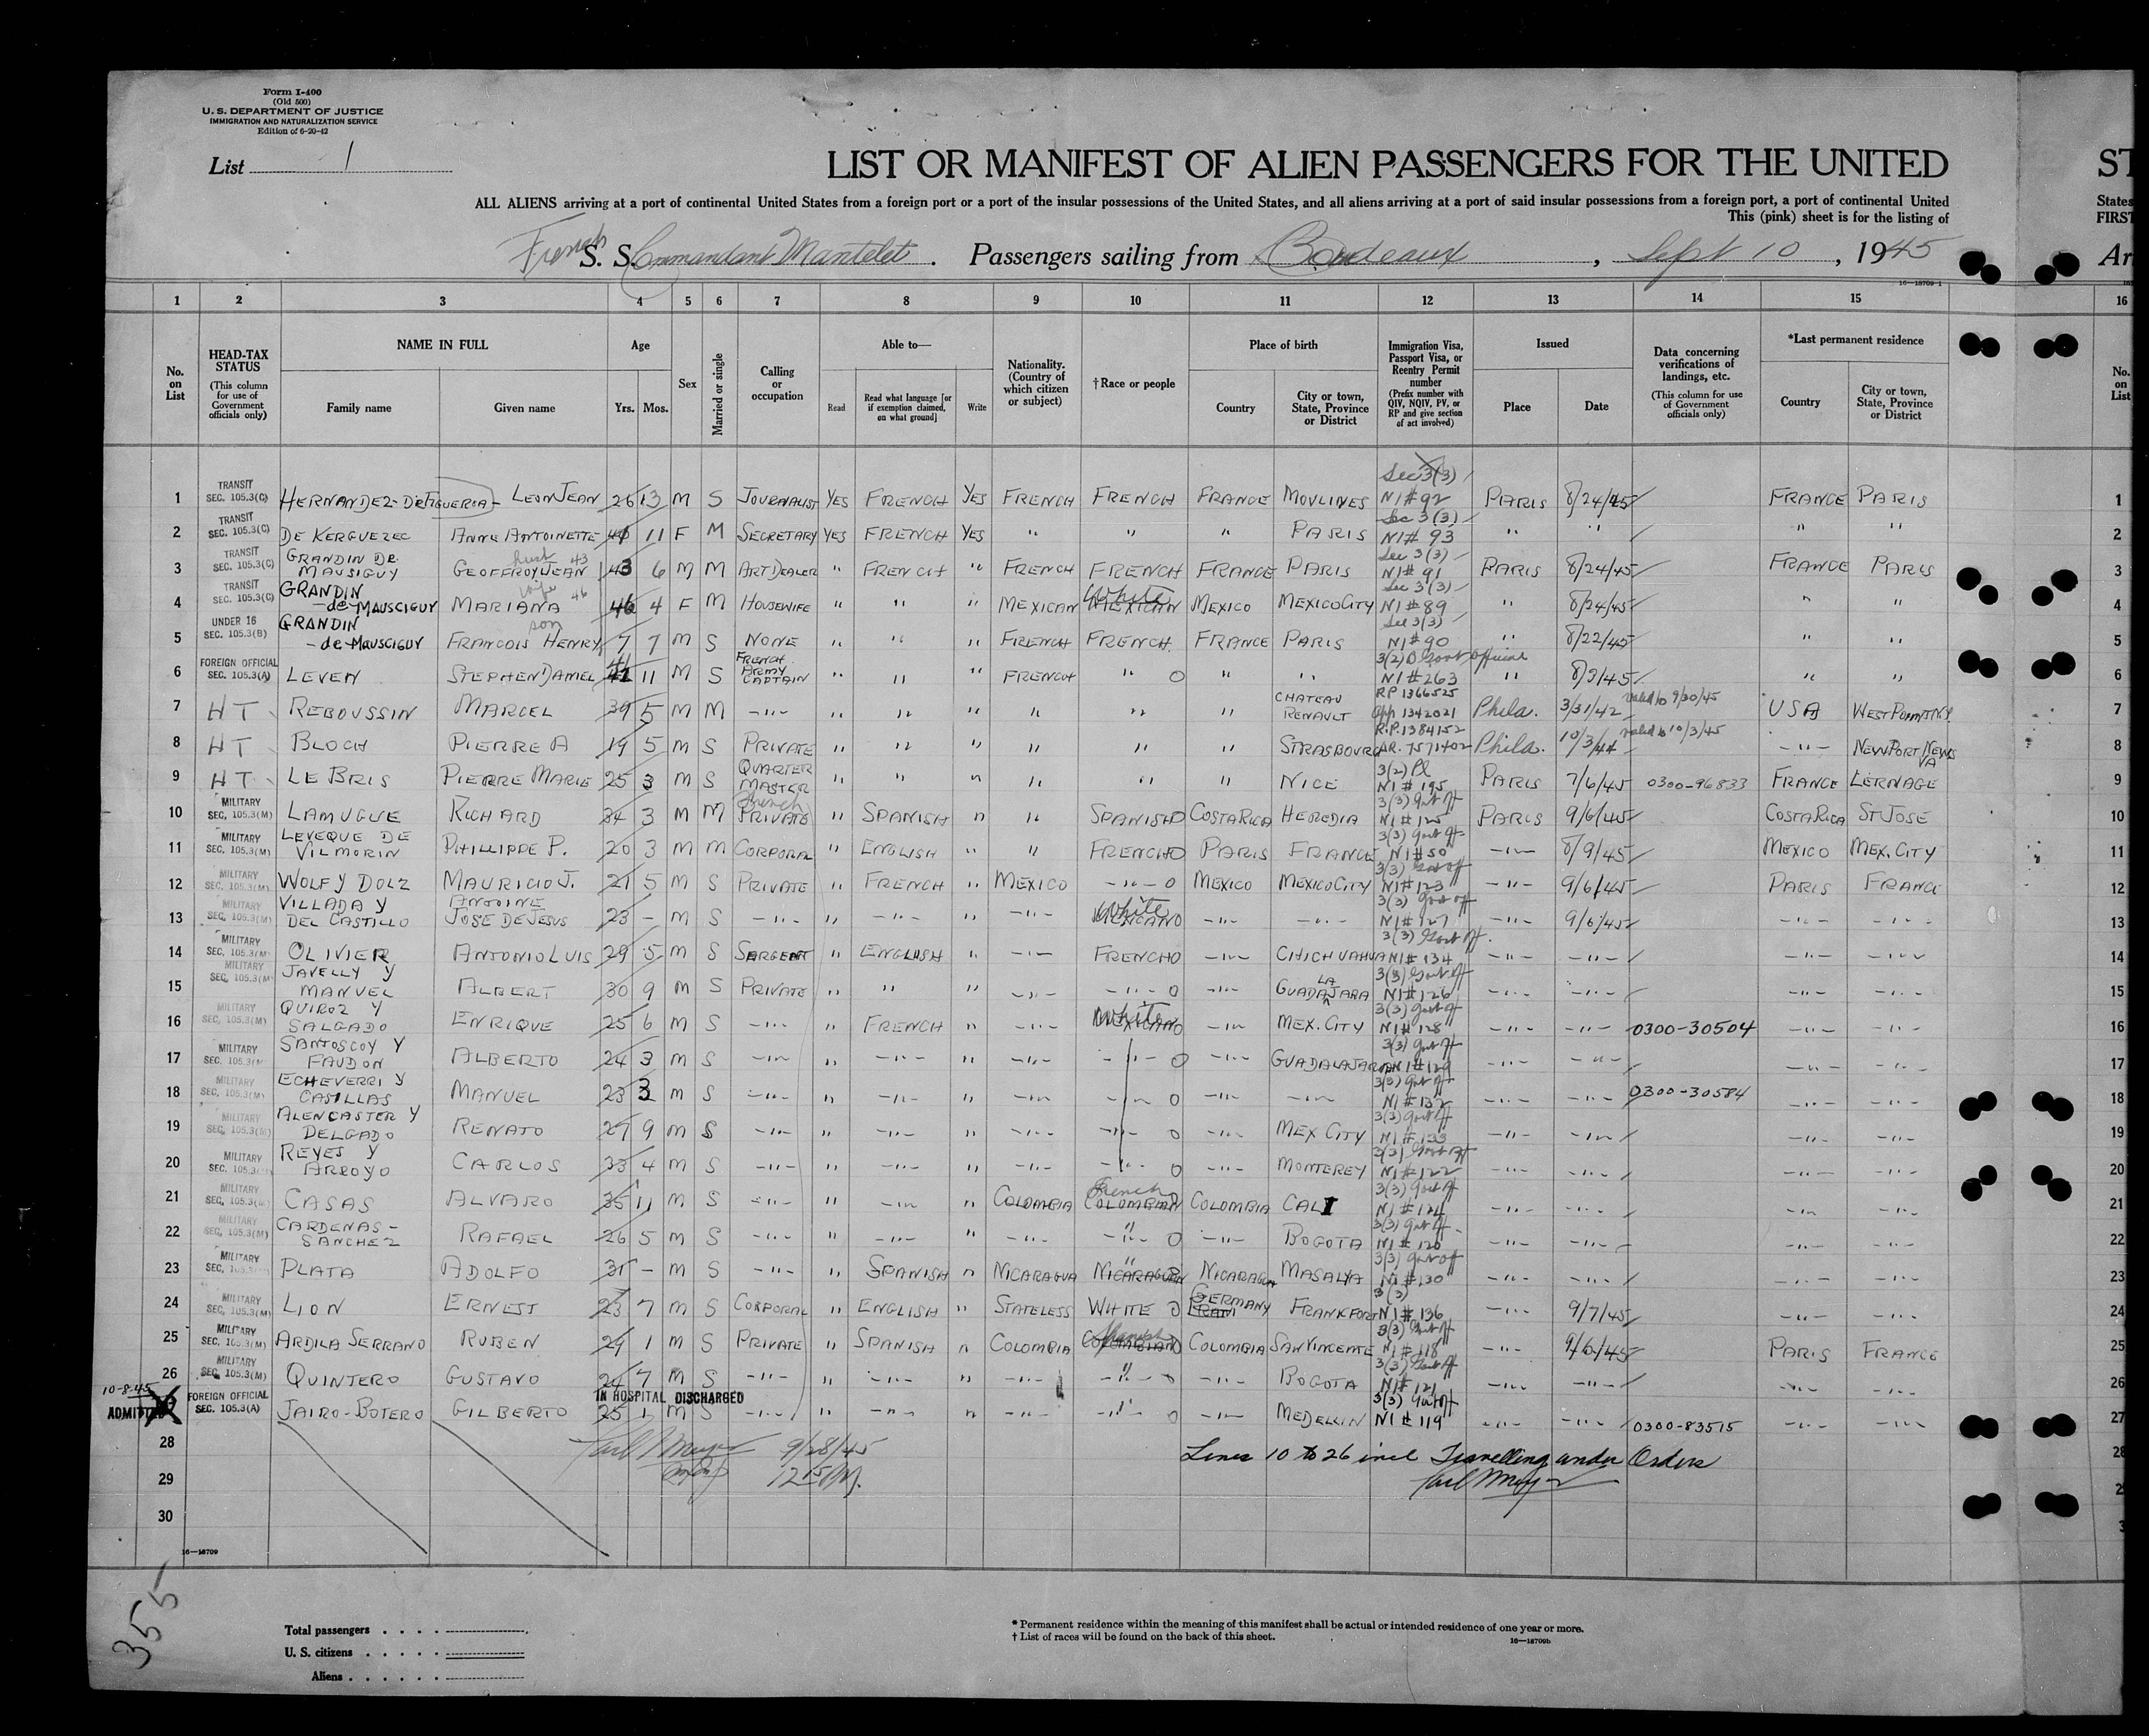 Form I-400
(Old 500)
U. S. DEPARTMENT OF JUSTICE
IMMIGRATION AND NATURALIZATION SERVICE
Edition of 6-20-42
List 1
LIST OR MANIFEST OF ALIEN PASSENGERS FOR THE UNITED ST
ALL ALIENS arriving at a port of continental United States from a foreign port or a port of the insular possessions of the United States, and all aliens arriving at a port of said insular possessions from a foreign port, a port of continental United States
This (pink) sheet is for the listing of FIRST
French S. S. Commandant Mantelet . Passengers sailing from Bordeaux , Sept 10 , 1945 Ar
16—18709-1
1 2 3 4 5 6 7 8 9 10 11 12 13 14 15 16
No. on List
HEAD-TAX STATUS (This column for use of Government officials only)
NAME IN FULL Family name Given name
Age Yrs. Mos.
Sex
Married or single
Calling or occupation
Able to— Read Read what language [or if exemption claimed, on what ground] Write
Nationality. (Country of which citizen or subject)
†Race or people
Place of birth Country City or town, State, Province or District
Immigration Visa, Passport Visa, or Reentry Permit number (Prefix number with QIV, NQIV, PV, or RP and give section of act involved)
Issued Place Date
Data concerning verifications of landings, etc. (This column for use of Government officials only)
*Last permanent residence Country City or town, State, Province or District
No. on List
1 TRANSIT SEC. 105.3(C) HERNANDEZ-DEFIGUEROA- LEON JEAN 26 3 M S JOURNALIST YES FRENCH YES FRENCH FRENCH FRANCE MOULINES Sec 3(3) NI#92 PARIS 8/24/45 FRANCE PARIS 1
2 TRANSIT SEC. 105.3(C) DE KERGUEZEC ANNE ANTOINETTE 11 F M SECRETARY YES FRENCH YES " " " PARIS Sec 3(3) NI#93 " " " " 2
3 TRANSIT SEC. 105.3(C) GRANDIN DE MAUSIGUY GEOFFROY JEAN husb 43 43 6 M M ART DEALER " FRENCH " FRENCH FRENCH FRANCE PARIS Sec 3(3) NI#91 PARIS 8/24/45 FRANCE PARIS 3
4 TRANSIT SEC. 105.3(C) GRANDIN -de-MAUSCIGUY MARIANA wife 46 46 4 F M HOUSEWIFE " " " MEXICAN MEXICAN White MEXICO MEXICO CITY Sec 3(3) NI#89 " 8/24/45 " " 4
5 UNDER 16 SEC. 105.3(B) GRANDIN -de-MAUSCIGUY FRANCOIS HENRY son 7 7 M S NONE " " " FRENCH FRENCH FRANCE PARIS Sec 3(3) NI#90 " 8/22/45 " " 5
6 FOREIGN OFFICIAL SEC. 105.3(A) LEVEN STEPHEN DANIEL 41 11 M S FRENCH ARMY CAPTAIN " " " FRENCH " O " " 3(2) Govt official NI#263 " 8/3/45 " " 6
7 HT REBOUSSIN MARCEL 39 5 M M -"- " " " " " " CHATEAU RENAULT RP 1366525 App 1342021 Phila. 3/31/42 valid to 9/30/45 USA WEST POINT NY 7
8 HT BLOCH PIERRE A 19 5 M S PRIVATE " " " " " " STRASBOURG R.P.1384152 AR. 7571402 Phila. 10/3/44 valid to 10/3/45 -"- NEWPORT NEWS VA 8
9 HT LE BRIS PIERRE MARIE 25 3 M S QUARTER MASTER " " " " " " NICE 3(2) Pl NI#195 PARIS 7/6/45 0300-96833 FRANCE LERNAGE 9
10 MILITARY SEC. 105.3(M) LAMUGUE RICHARD 34 3 M M French PRIVATE " SPANISH " " SPANISH O COSTA RICA HEREDIA 3(3) Govt Off NI#125 PARIS 9/6/45 COSTA RICA ST JOSE 10
11 MILITARY SEC. 105.3(M) LEVEQUE DE VILMORIN PHILLIPPE P. 20 3 M M CORPORAL " ENGLISH " " FRENCH O PARIS FRANCE 3(3) Govt Off NI#50 -"- 8/9/45 MEXICO MEX. CITY 11
12 MILITARY SEC. 105.3(M) WOLF Y DOLZ MAURICIO J. 21 5 M S PRIVATE " FRENCH " MEXICO -"- O MEXICO MEXICO CITY 3(3) Govt off NI#123 -"- 9/6/45 PARIS FRANCE 12
13 MILITARY SEC. 105.3(M) VILLADA Y DEL CASTILLO ANTOINE JOSE DE JESUS 23 - M S -"- " -"- " -"- MEXICANO White -"- -"- 3(3) Govt off NI#127 -"- 9/6/45 -"- -"- 13
14 MILITARY SEC. 105.3(M) OLIVIER ANTONIO LUIS 29 5 M S SARGENT " ENGLISH " -"- FRENCH O -"- CHICHUAHUA 3(3) Govt Off. NI#134 -"- -"- -"- -"- 14
15 MILITARY SEC. 105.3(M) JAVELLY Y MANUEL ALBERT 30 9 M S PRIVATE " " " -"- -"- O -"- GUADALAJARA 3(3) Govt Off NI#126 -"- -"- -"- -"- 15
16 MILITARY SEC. 105.3(M) QUIROZ Y SALGADO ENRIQUE 25 6 M S -"- " FRENCH " -"- MEXICANO White -"- MEX. CITY 3(3) Govt Off NI#128 -"- -"- 0300-30504 -"- -"- 16
17 MILITARY SEC. 105.3(M) SANTOSCOY Y FAUDON ALBERTO 24 3 M S -"- " -"- " -"- -"- O -"- GUADALAJARA 3(3) Govt Off NI#129 -"- -"- -"- -"- 17
18 MILITARY SEC. 105.3(M) ECHEVERRI Y CASILLAS MANUEL 23 3 M S -"- " -"- " -"- -"- O -"- -"- 3(3) Govt Off NI#132 -"- -"- 0300-30584 -"- -"- 18
19 MILITARY SEC. 105.3(M) ALENCASTER Y DELGADO RENATO 27 9 M S -"- " -"- " -"- -"- O -"- MEX CITY 3(3) Govt Off NI#133 -"- -"- -"- -"- 19
20 MILITARY SEC. 105.3(M) REYES Y ARROYO CARLOS 33 4 M S -"- " -"- " -"- -"- O -"- MONTEREY 3(3) Govt Off NI#122 -"- -"- -"- -"- 20
21 MILITARY SEC. 105.3(M) CASAS ALVARO 35 11 M S -"- " -"- " COLOMBIA COLOMBIAN French COLOMBIA CALI 3(3) Govt Off NI#124 -"- -"- -"- -"- 21
22 MILITARY SEC. 105.3(M) CARDENAS-SANCHEZ RAFAEL 26 5 M S -"- " -"- " -"- -"- O -"- BOGOTA 3(3) Govt Off NI#120 -"- -"- -"- -"- 22
23 MILITARY SEC. 105.3(M) PLATA ADOLFO 31 - M S -"- " SPANISH " NICARAGUA NICARAGUAN " NICARAGUA MASALYA 3(3) Govt Off NI#130 -"- -"- -"- -"- 23
24 MILITARY SEC. 105.3(M) LION ERNEST 23 7 M S CORPORAL " ENGLISH " STATELESS WHITE O GERMANY FRANKFORT 3(3) NI#136 -"- 9/7/45 -"- -"- 24
25 MILITARY SEC. 105.3(M) ARDILA SERRANO RUBEN 29 1 M S PRIVATE " SPANISH " COLOMBIA COLOMBIANO Spanish COLOMBIA SAN VINCENTE 3(3) Govt Off NI#118 -"- 9/6/45 PARIS FRANCE 25
26 MILITARY SEC. 105.3(M) QUINTERO GUSTAVO 24 7 M S -"- " -"- " -"- -"- O -"- BOGOTA 3(3) Govt Off NI#121 -"- -"- -"- -"- 26
10-8-45 ADMITTED FOREIGN OFFICIAL SEC. 105.3(A) JAIRO-BOTERO GILBERTO IN HOSPITAL DISCHARGED 25 1 M S -"- " -"- " -"- -"- O -"- MEDELLIN 3(3) Govt Off NI#119 -"- -"- 0300-83515 -"- -"- 27
28 Karl Meyer 9/28/45 Lines 10 to 26 incl Travelling under Orders 28
29 12 15 PM. Karl Meyer
30
16—18709
355
Total passengers
U. S. citizens
Aliens
* Permanent residence within the meaning of this manifest shall be actual or intended residence of one year or more.
† List of races will be found on the back of this sheet.
16—18709b